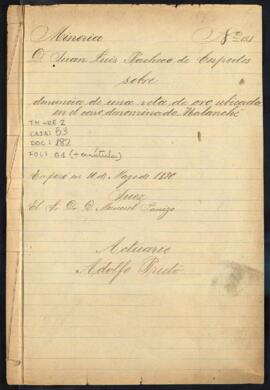 Mineria Nº 181
D. Juan Luis Pacheco de Cespedes
sobre
denuncia de una veta de oro, ubicada
en el cerro denominado
TM-RE 2
CAJA: 53
DOC: 182
FOL: 01 (+ carátula)
Empezó en 10 Mayo de 1880
Juez
El S. D. D. Manuel
Actuario
Adolfo Prieto